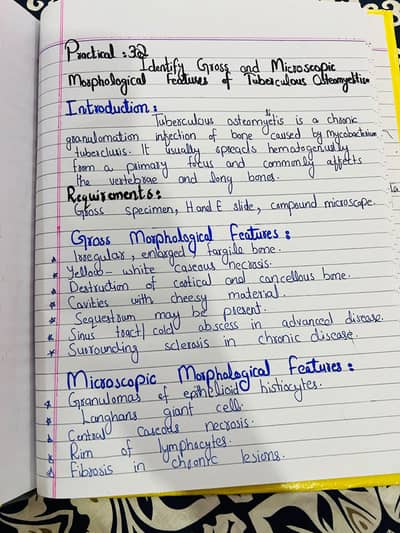 Practical : 32
Identify Gross and Microscopic
Morphological Features of Tuberculous Osteomyelitis
Introduction :
Tuberculous osteomyelitis is a chronic
granulomation infection of bone caused by mycobacterium
tuberclusis. It usually spreads hematogenually
from a primary focus and commonly affects
the vertebrae and long bones.
Requirements :
Gross specimen, H and E slide, compound microscope.
Gross Morphological Features :
* Irregular, enlarged, fargile bone.
* Yellow-white caseous necrosis.
* Destruction of cortical and cancellous bone.
* Cavities with cheesy material.
* Sequestrum may be present.
* Sinus tract/cold abscess in advanced disease.
* Surrounding sclerosis in chronic disease.
Microscopic Morphological Features :
* Granulomas of epithelioid histiocytes.
* Langhans giant cell.
* Central caseous necrosis.
* Rim of lymphocytes.
* Fibrosis in chronic lesions.